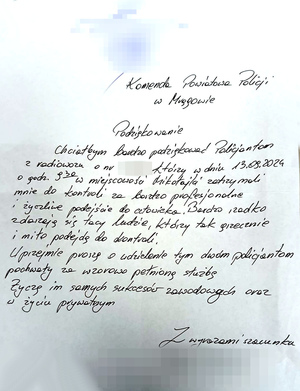 Komenda Powiatowa Policji
w Mrągowie
Podziękowanie
Chciałbym bardzo podziękować Policjantom
z radiowozu o nr którzy w dniu 13.09.2024
o godz. 9 30 w miejscowości Mikołajki zatrzymali
mnie do kontroli za bardzo profesjonalne
i życzliwe podejście do człowieka. Bardzo rzadko
zdarzają się tacy ludzie, którzy tak grzecznie
i miło podejdą do kontroli.
Uprzejmie proszę o udzielenie tym dwóm policjantom
pochwały za wzorowo pełnioną służbę
Życzę im samych sukcesów zawodowych oraz
w życiu prywatnym
Z wyrazami szacunku